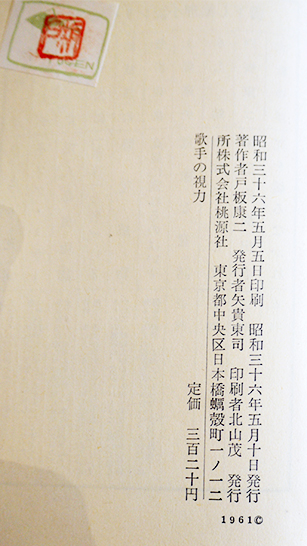 昭和三十六年五月五日印刷　昭和三十六年五月十日発行
著作者戸板康二　発行者矢貴東司　印刷者北山茂　発行
所株式会社桃源社　東京都中央区日本橋蠣殻町一ノ一二
歌手の視力　定価　三百二十円
1961©